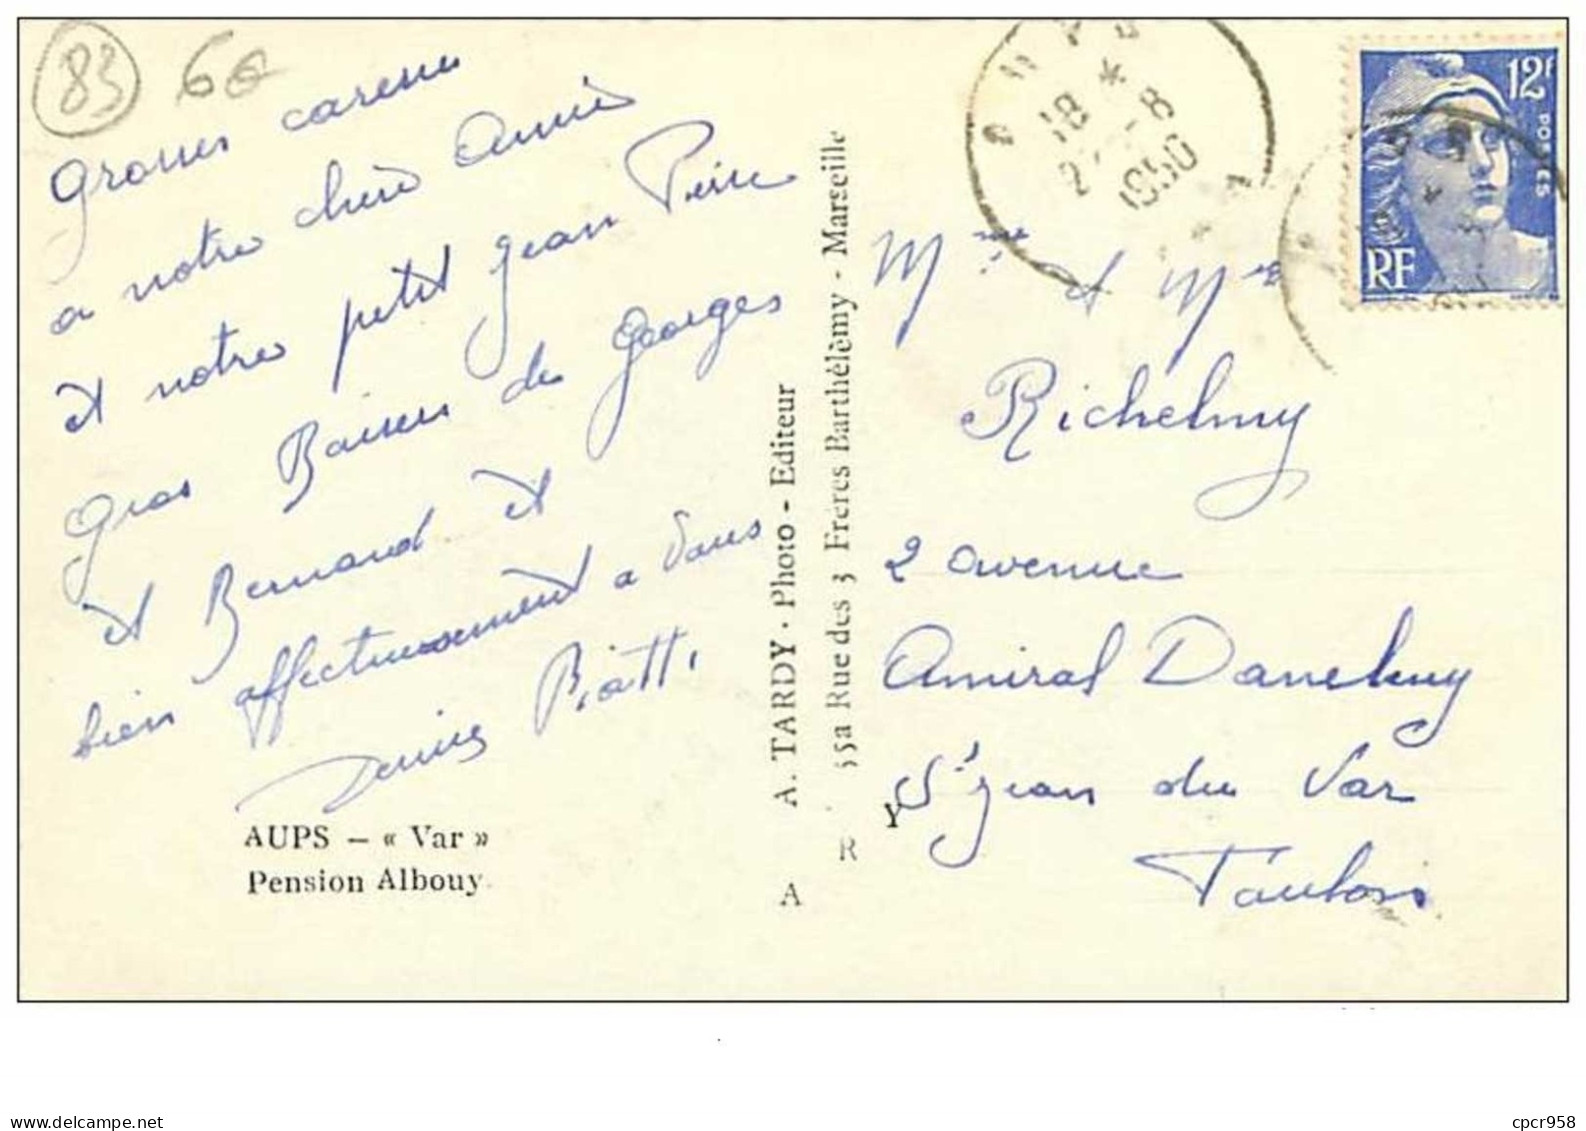 83 60
Grosses caresses
a notre chère Annie
et notre petit Jean Pierre
Gros Baisers de Georges
et Bernard et
bien affectueusement a vous
Denise Piatti
AUPS — « Var »
Pension Albouy
A. TARDY - Photo - Editeur
55a Rue des 3 Frères Barthélèmy - Marseille
A R Y
AUPS
18 *
2 -8
1950
12F
POSTES
RF
Mme et Mr
Richelmy
2 avenue
Amiral
St Jean du Var
Toulon
cpcr958